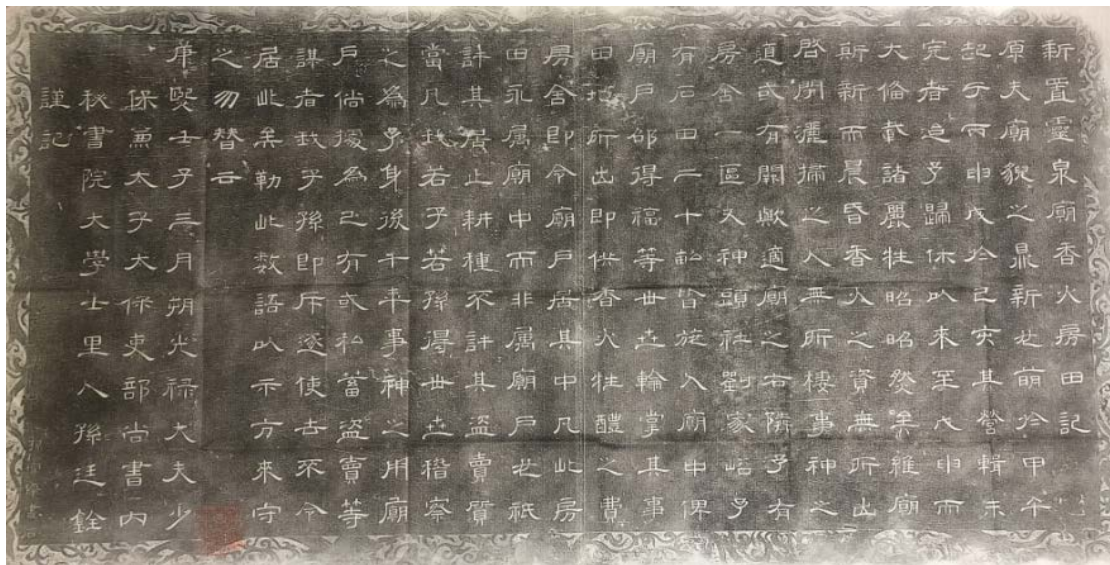 新置靈泉廟香火房田記
原夫廟貌之鼎新也萌於甲午
起于丙申戊今己亥其營輯未
完者迨予歸休以來至戊申而
大備載諸麗牲昭昭然矣維廟
斯新而晨昏香火之資無所出
啓閉灑掃之人無所棲事神之
道或有闕歟適廟之右隣予有
房舍一區又神頭社劉家峪予
有石田二十畝皆施入廟中俾
廟戶邵得福等世世輪掌其事
田所出即供香火牲醴之費
房舍即令廟戶居其中凡此房
田永属廟中而非属廟戶也祇
許其居止耕種不許其盜賣質
當凡我若子若孫得世世稽察
之為予身後千年事神之用廟
戶倘援為己有或私蓄盜賣等
謀者我子孫即斥逐使去不令
居此矣勒此数語以示方來守
之勿替云
康熙壬子三月朔光祿大夫少
保兼太子太保吏部尚書內
秘書院大學士里人孫廷銓
謹記